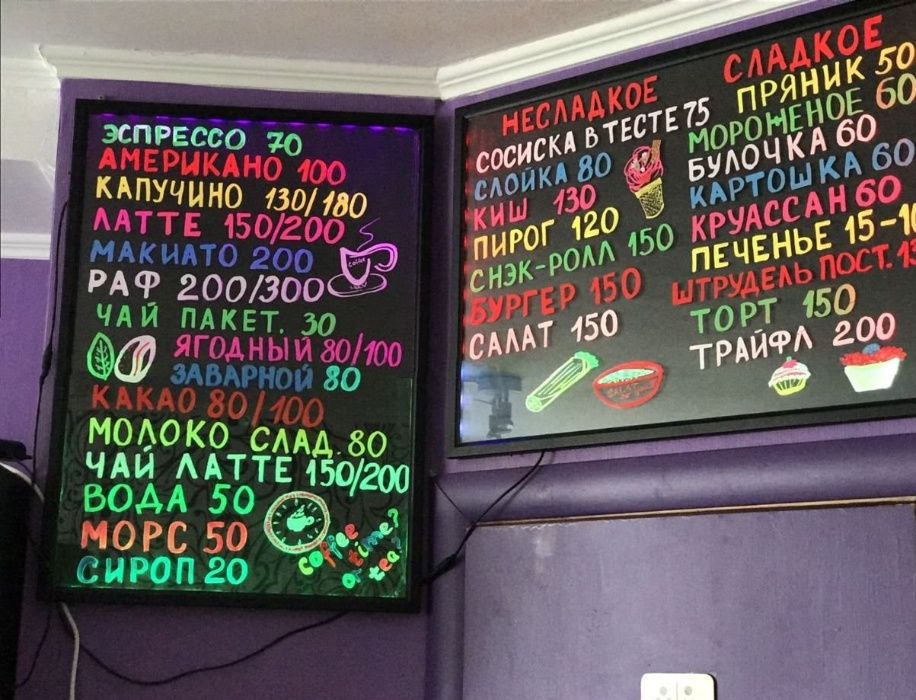 ЭСПРЕССО 70
АМЕРИКАНО 100
КАПУЧИНО 130/180
ЛАТТЕ 150/200
МАКИАТО 200
РАФ 200/300
ЧАЙ ПАКЕТ. 30
ЯГОДНЫЙ 80/100
ЗАВАРНОЙ 80
КАКАО 80/100
МОЛОКО СЛАД. 80
ЧАЙ ЛАТТЕ 150/200
ВОДА 50
МОРС 50
СИРОП 20
coffee
coffee
time?
or tea?
НЕСЛАДКОЕ
СОСИСКА В ТЕСТЕ 75
СЛОЙКА 80
КИШ 130
ПИРОГ 120
СНЭК-РОЛЛ 150
БУРГЕР 150
САЛАТ 150
СЛАДКОЕ
ПРЯНИК 50
МОРОЖЕНОЕ 60
БУЛОЧКА 60
КАРТОШКА 60
КРУАССАН 60
ПЕЧЕНЬЕ 15-
ШТРУДЕЛЬ ПОСТ.
ТОРТ 150
ТРАЙФЛ 200